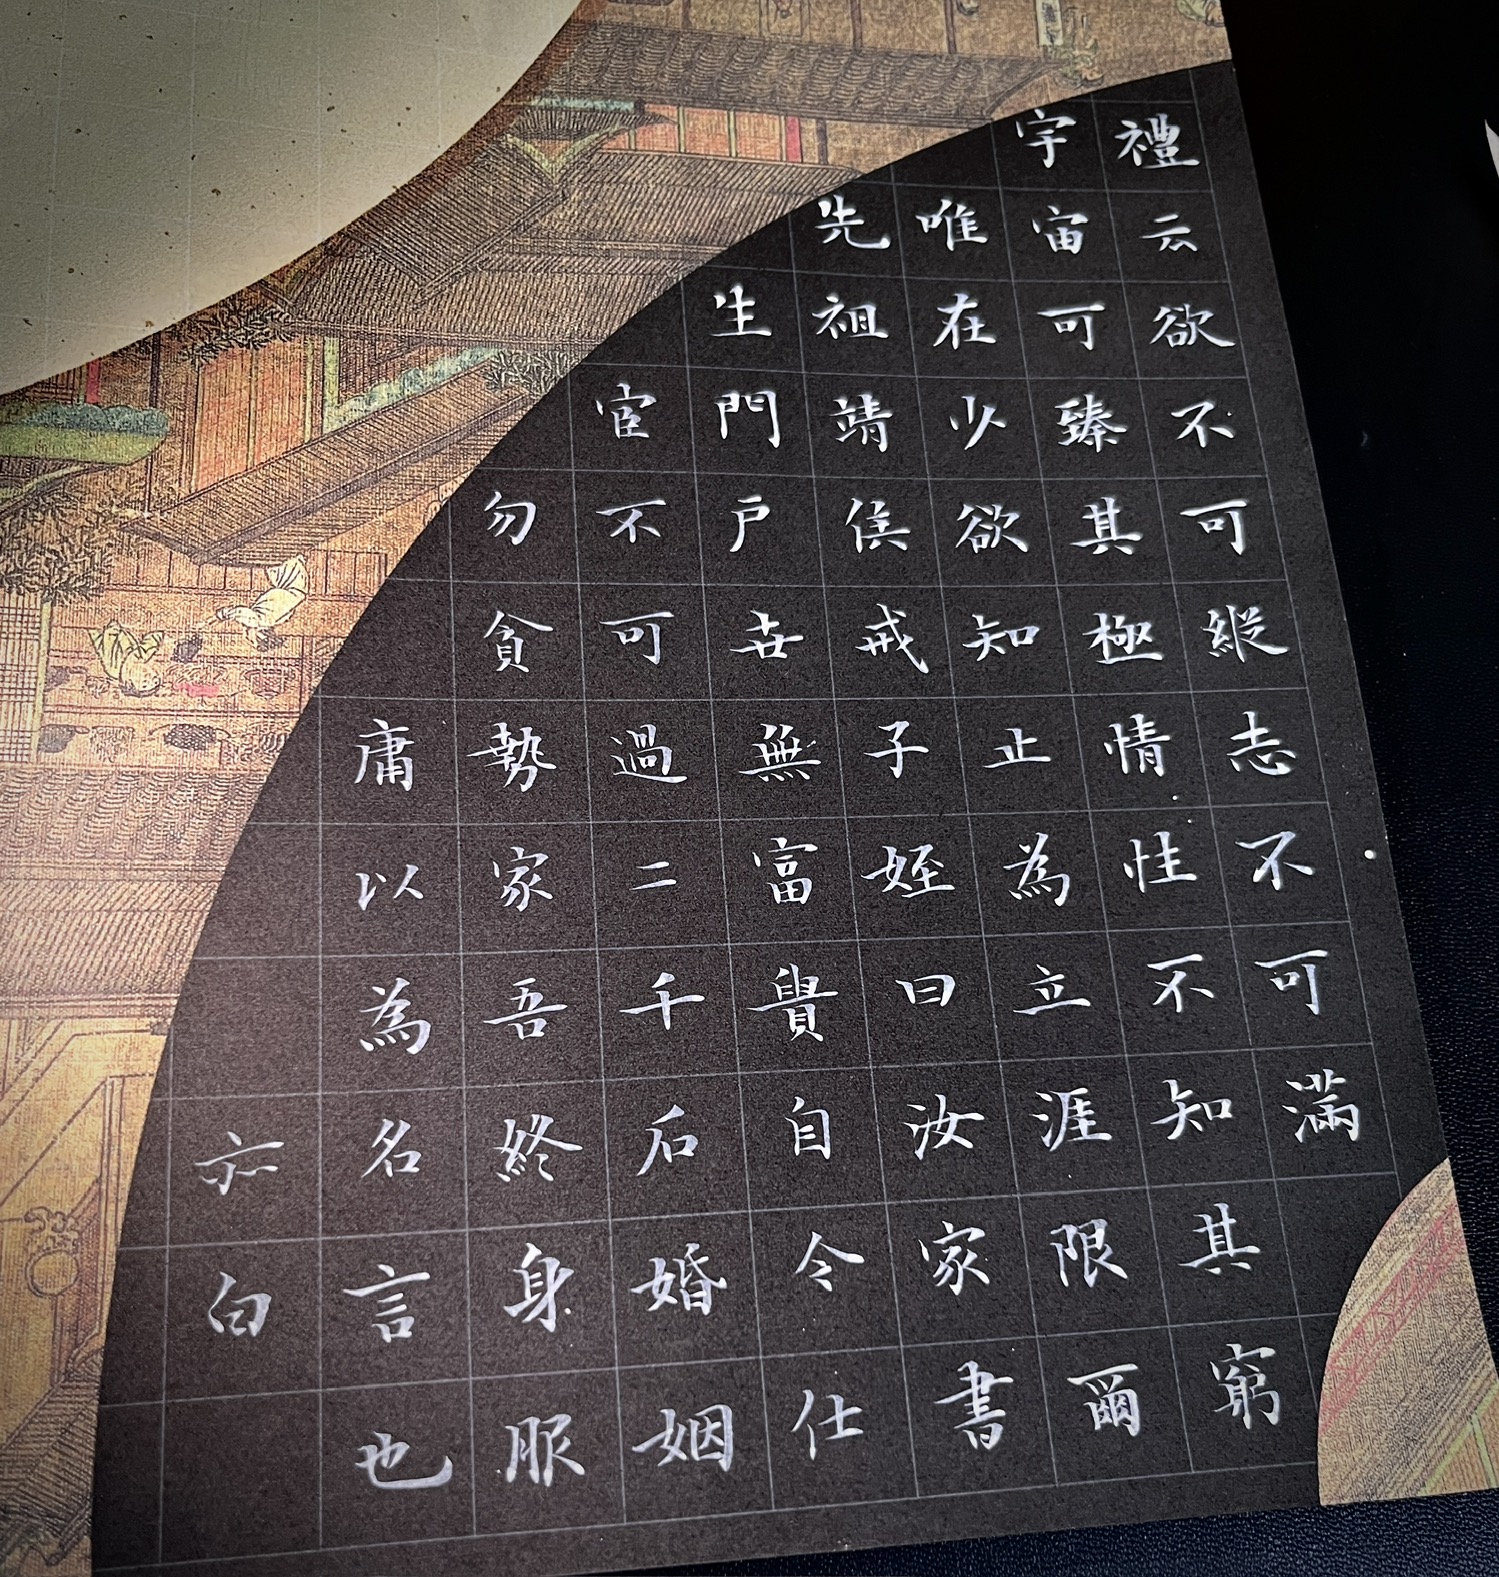 禮云欲不可縱志不可滿
宇宙可臻其極情性不知其窮
唯在少欲知止為立涯限爾
先祖靖侯戒子姪曰汝家書
生門戶世無富貴自今仕
宦不可過二千石婚姻
勿貪勢家吾終身服
庸以為名言也
白